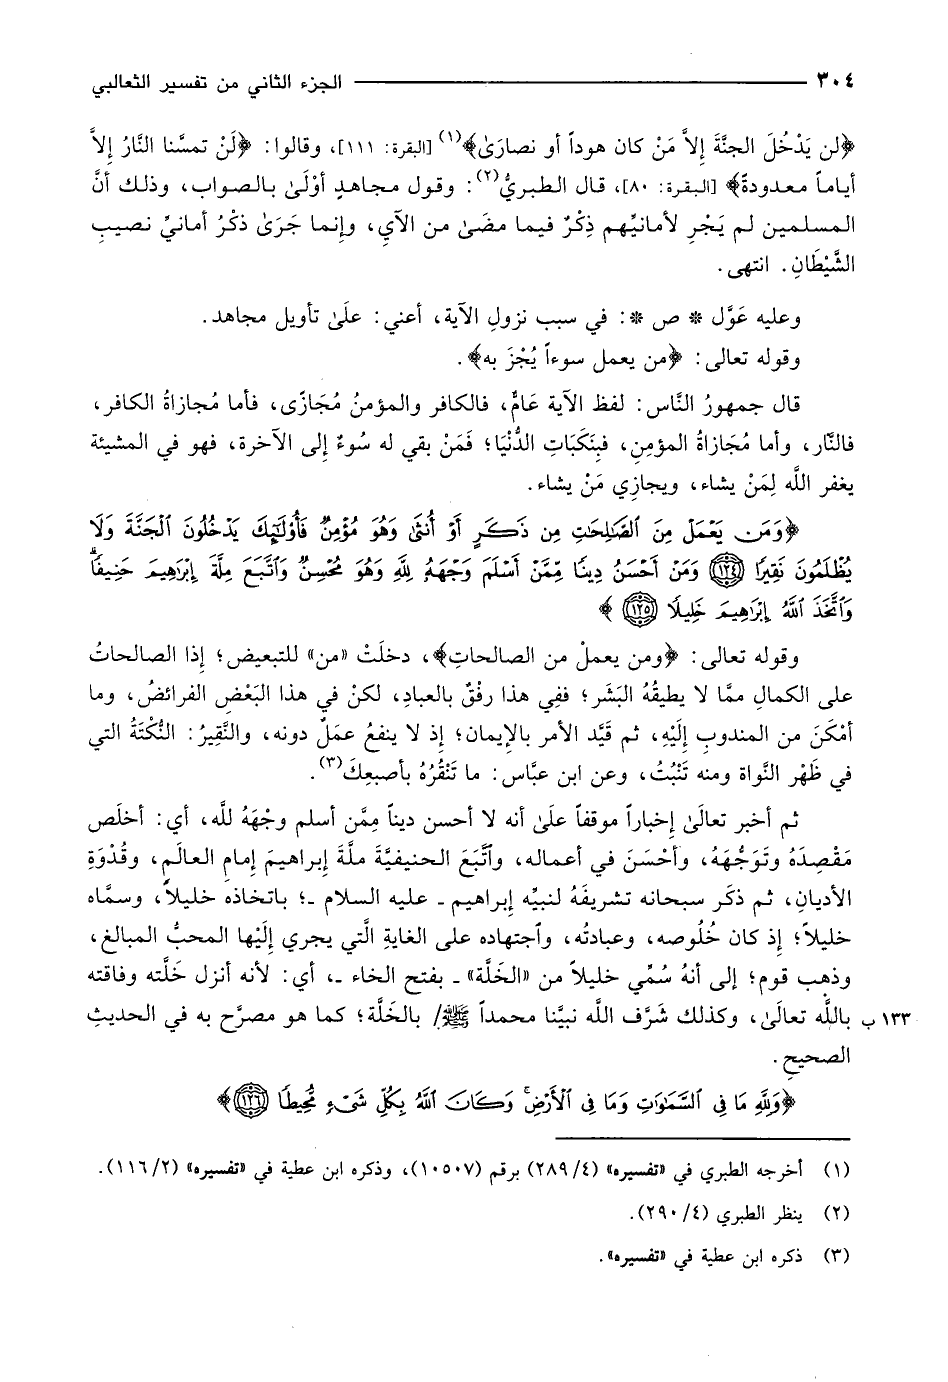 ٣٠٤ الجزء الثاني من تفسير الثعالبي
﴿لن يَدْخُلَ الجنَّةَ إِلاَّ مَنْ كان هوداً أو نصارَىٰ﴾(١) [البقرة: ١١١]، وقالوا: ﴿لَنْ تمسَّنا النَّارُ إلاَّ
أياماً معدودةً﴾ [البقرة: ٨٠]، قال الطبريُّ(٢): وقول مجاهدٍ أوْلَىٰ بالصواب، وذلك أنَّ
المسلمين لم يَجْرِ لأمانيِّهم ذِكْرٌ فيما مضَىٰ من الآيِ، وإنما جَرَىٰ ذكْرُ أمانيِّ نصيبِ
الشَّيْطَانِ. انتهى.
وعليه عَوَّل * ص *: في سبب نزولِ الآية، أعني: علَىٰ تأويل مجاهد.
وقوله تعالى: ﴿من يعمل سوءاً يُجْزَ به﴾.
قال جمهورُ النَّاس: لفظ الآية عَامٌّ، فالكافر والمؤمنُ مُجَازًى، فأما مُجازاةُ الكافر،
فالنَّار، وأما مُجَازاةُ المؤمِنِ، فبِنَكَبَاتِ الدُّنْيَا؛ فَمَنْ بقي له سُوءٌ إِلى الآخرة، فهو في المشيئة
يغفر اللَّه لِمَنْ يشاء، ويجازِي مَنْ يشاء.
﴿وَمَن يَعْمَلْ مِنَ ٱلصَّٰلِحَٰتِ مِن ذَكَرٍ أَوْ أُنثَىٰ وَهُوَ مُؤْمِنٌ فَأُو۟لَٰٓئِكَ يَدْخُلُونَ ٱلْجَنَّةَ وَلَا
يُظْلَمُونَ نَقِيرًا ١٢٤ وَمَنْ أَحْسَنُ دِينًا مِّمَّنْ أَسْلَمَ وَجْهَهُۥ لِلَّهِ وَهُوَ مُحْسِنٌ وَٱتَّبَعَ مِلَّةَ إِبْرَٰهِيمَ حَنِيفًاۗ
وَٱتَّخَذَ ٱللَّهُ إِبْرَٰهِيمَ خَلِيلًا ١٢٥﴾
وقوله تعالى: ﴿ومن يعملْ من الصالحاتِ﴾، دخلَتْ «من» للتبعيض؛ إذا الصالحاتُ
على الكمال ممَّا لا يطيقُهُ البَشَر؛ ففِي هذا رفْقٌ بالعبادِ، لكنْ في هذا البَعْضِ الفرائضُ، وما
أمْكَنَ من المندوبِ إِلَيْهِ، ثم قَيَّد الأمر بالإِيمان؛ إِذ لا ينفعُ عمَلٌ دونه، والنَّقِيرُ: النُّكْتَةُ التي
في ظَهْر النَّواة ومنه تَنْبُتُ، وعن ابن عبَّاس: ما تَنْقُرُهُ بأصبعِكَ(٣).
ثم أخبر تعالَىٰ إِخباراً موقفاً علَىٰ أنه لا أحسن ديناً مِمَّن أسلم وجْهَهُ للَّه، أي: أخلَص
مَقْصِدَهُ وتَوَجُّهَهُ، وأحْسَنَ في أعماله، واُتَّبَعَ الحنيفيَّةَ ملَّةَ إِبراهيمَ إِمامِ العالَمِ، وقُدْوَةِ
الأديانِ، ثم ذكَر سبحانه تشريفَهُ لنبيِّه إِبراهيم - عليه السلام -؛ باتخاذه خليلاً، وسمَّاه
خليلاً؛ إِذ كان خُلُوصه، وعبادتُه، واُجتهاده على الغايةِ الَّتي يجري إِلَيْها المحبُّ المبالغ،
وذهب قوم؛ إِلى أنهُ سُمِّي خليلاً من «الخَلَّة» - بفتح الخاء -، أي: لأنه أنزل خَلَّته وفاقته
باللَّه تعالَىٰ، وكذلك شَرَّف اللَّه نبيَّنا محمداً ﷺ/ بالخَلَّة؛ كما هو مصرَّح به في الحديثِ ١٣٣ ب
الصحيحِ.
﴿وَلِلَّهِ مَا فِى ٱلسَّمَٰوَٰتِ وَمَا فِى ٱلْأَرْضِۚ وَكَانَ ٱللَّهُ بِكُلِّ شَىْءٍ مُّحِيطًا ١٢٦﴾
(١) أخرجه الطبري في «تفسيره» (٤/ ٢٨٩) برقم (١٠٥٠٧)، وذكره ابن عطية في «تفسيره» (٢/ ١١٦).
(٢) ينظر الطبري (٤/ ٢٩٠).
(٣) ذكره ابن عطية في «تفسيره».